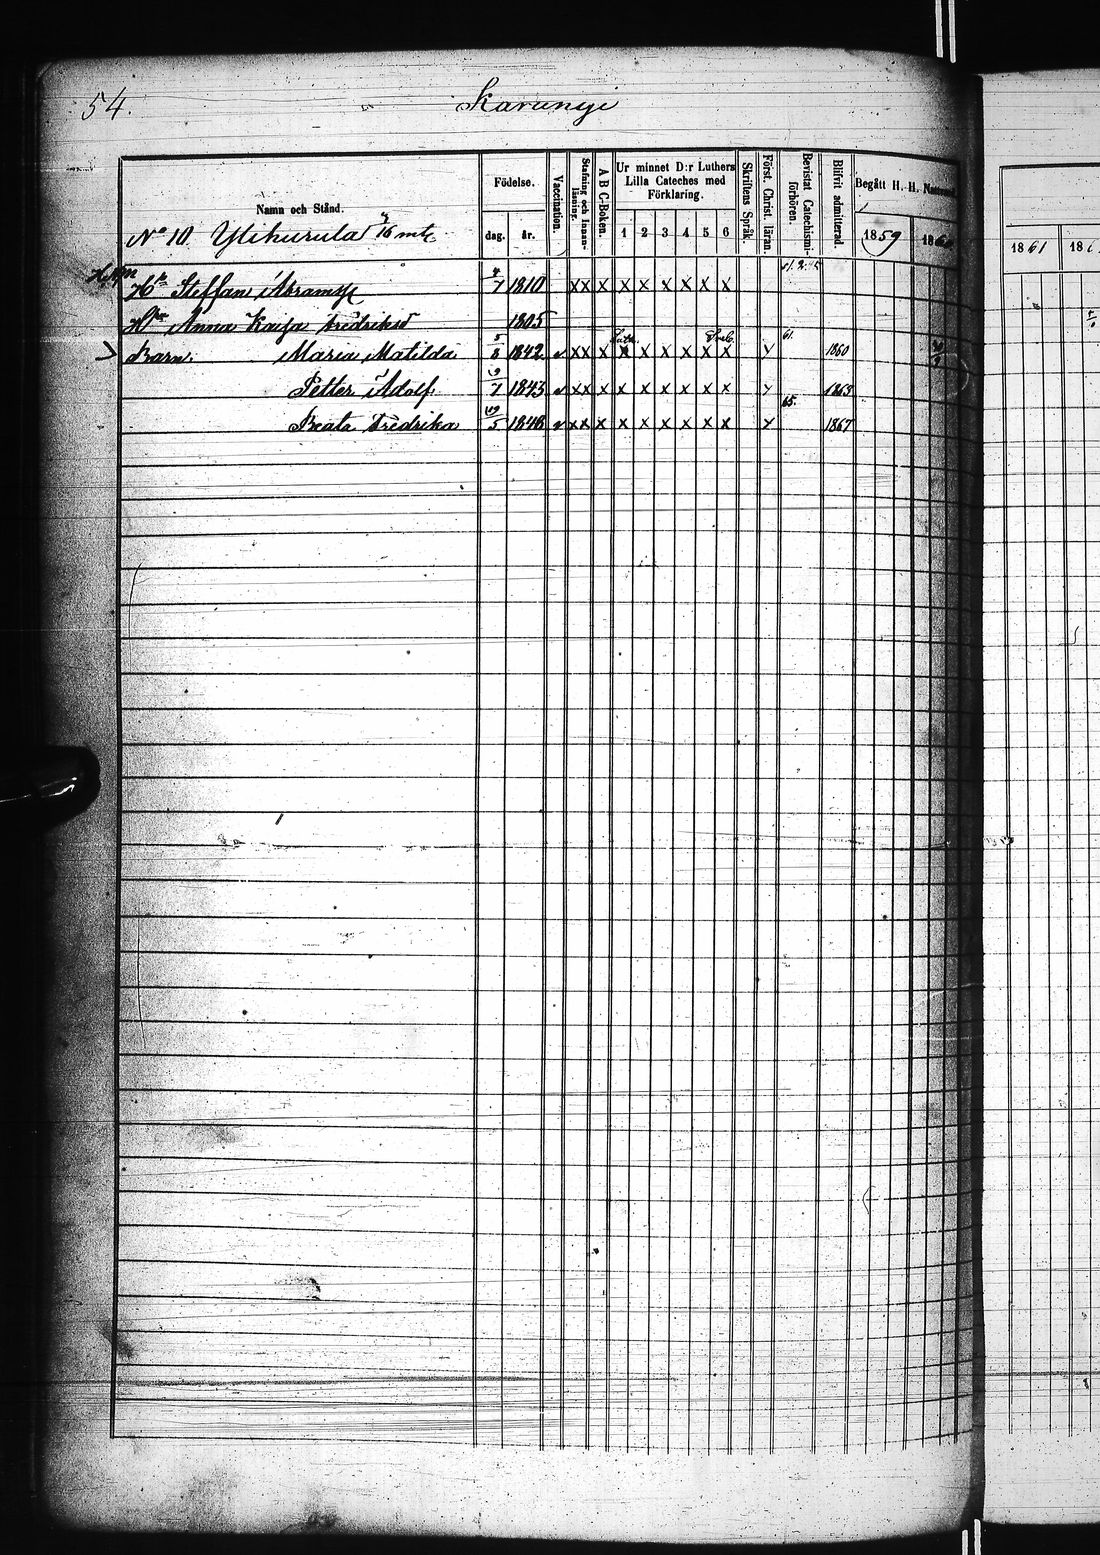 54. Karungi
Namn och Stånd. Födelse. dag. år. Vaccination. Stafning och Innanläsning. A B C-Boken. Ur minnet D:r Luthers Lilla Cateches med Förklaring. 1 2 3 4 5 6 Skriftens Språk. Först. Christ. läran. Bevistat Catechismi-förhören. Blifvit admitterad Begått H. H. Nattvard. 1859 186 1861 186
No 10 Ylikurula 3/16 mtl
Steffan Abramss 4/7 1810 X X X X X X X X X
Anna Kajsa Fredriksd 1805
Barn Maria Matilda 5/8 1842 v X X X X X X X X X y 61. 1860
Petter Adolf 19/7 1843 v X X X X X X X X X y 1863
Beata Fredrika 19/5 1848 v X X X X X X X X X y 65. 1867